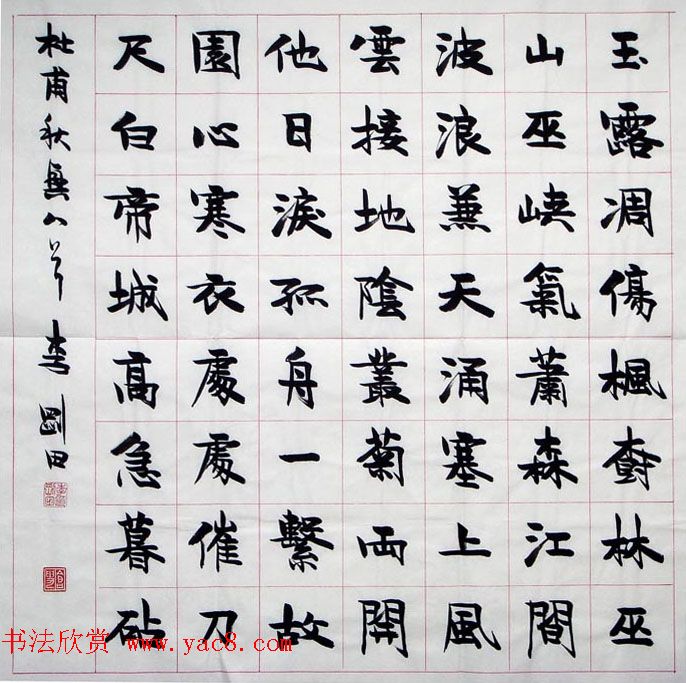 玉露凋傷楓樹林巫
山巫峽氣蕭森江間
波浪兼天涌塞上風
雲接地陰叢菊兩開
他日淚孤舟一繫故
園心寒衣處處催刀
尺白帝城高急暮砧
杜甫秋興八首 李剛田
书法欣赏 www.yac8.com